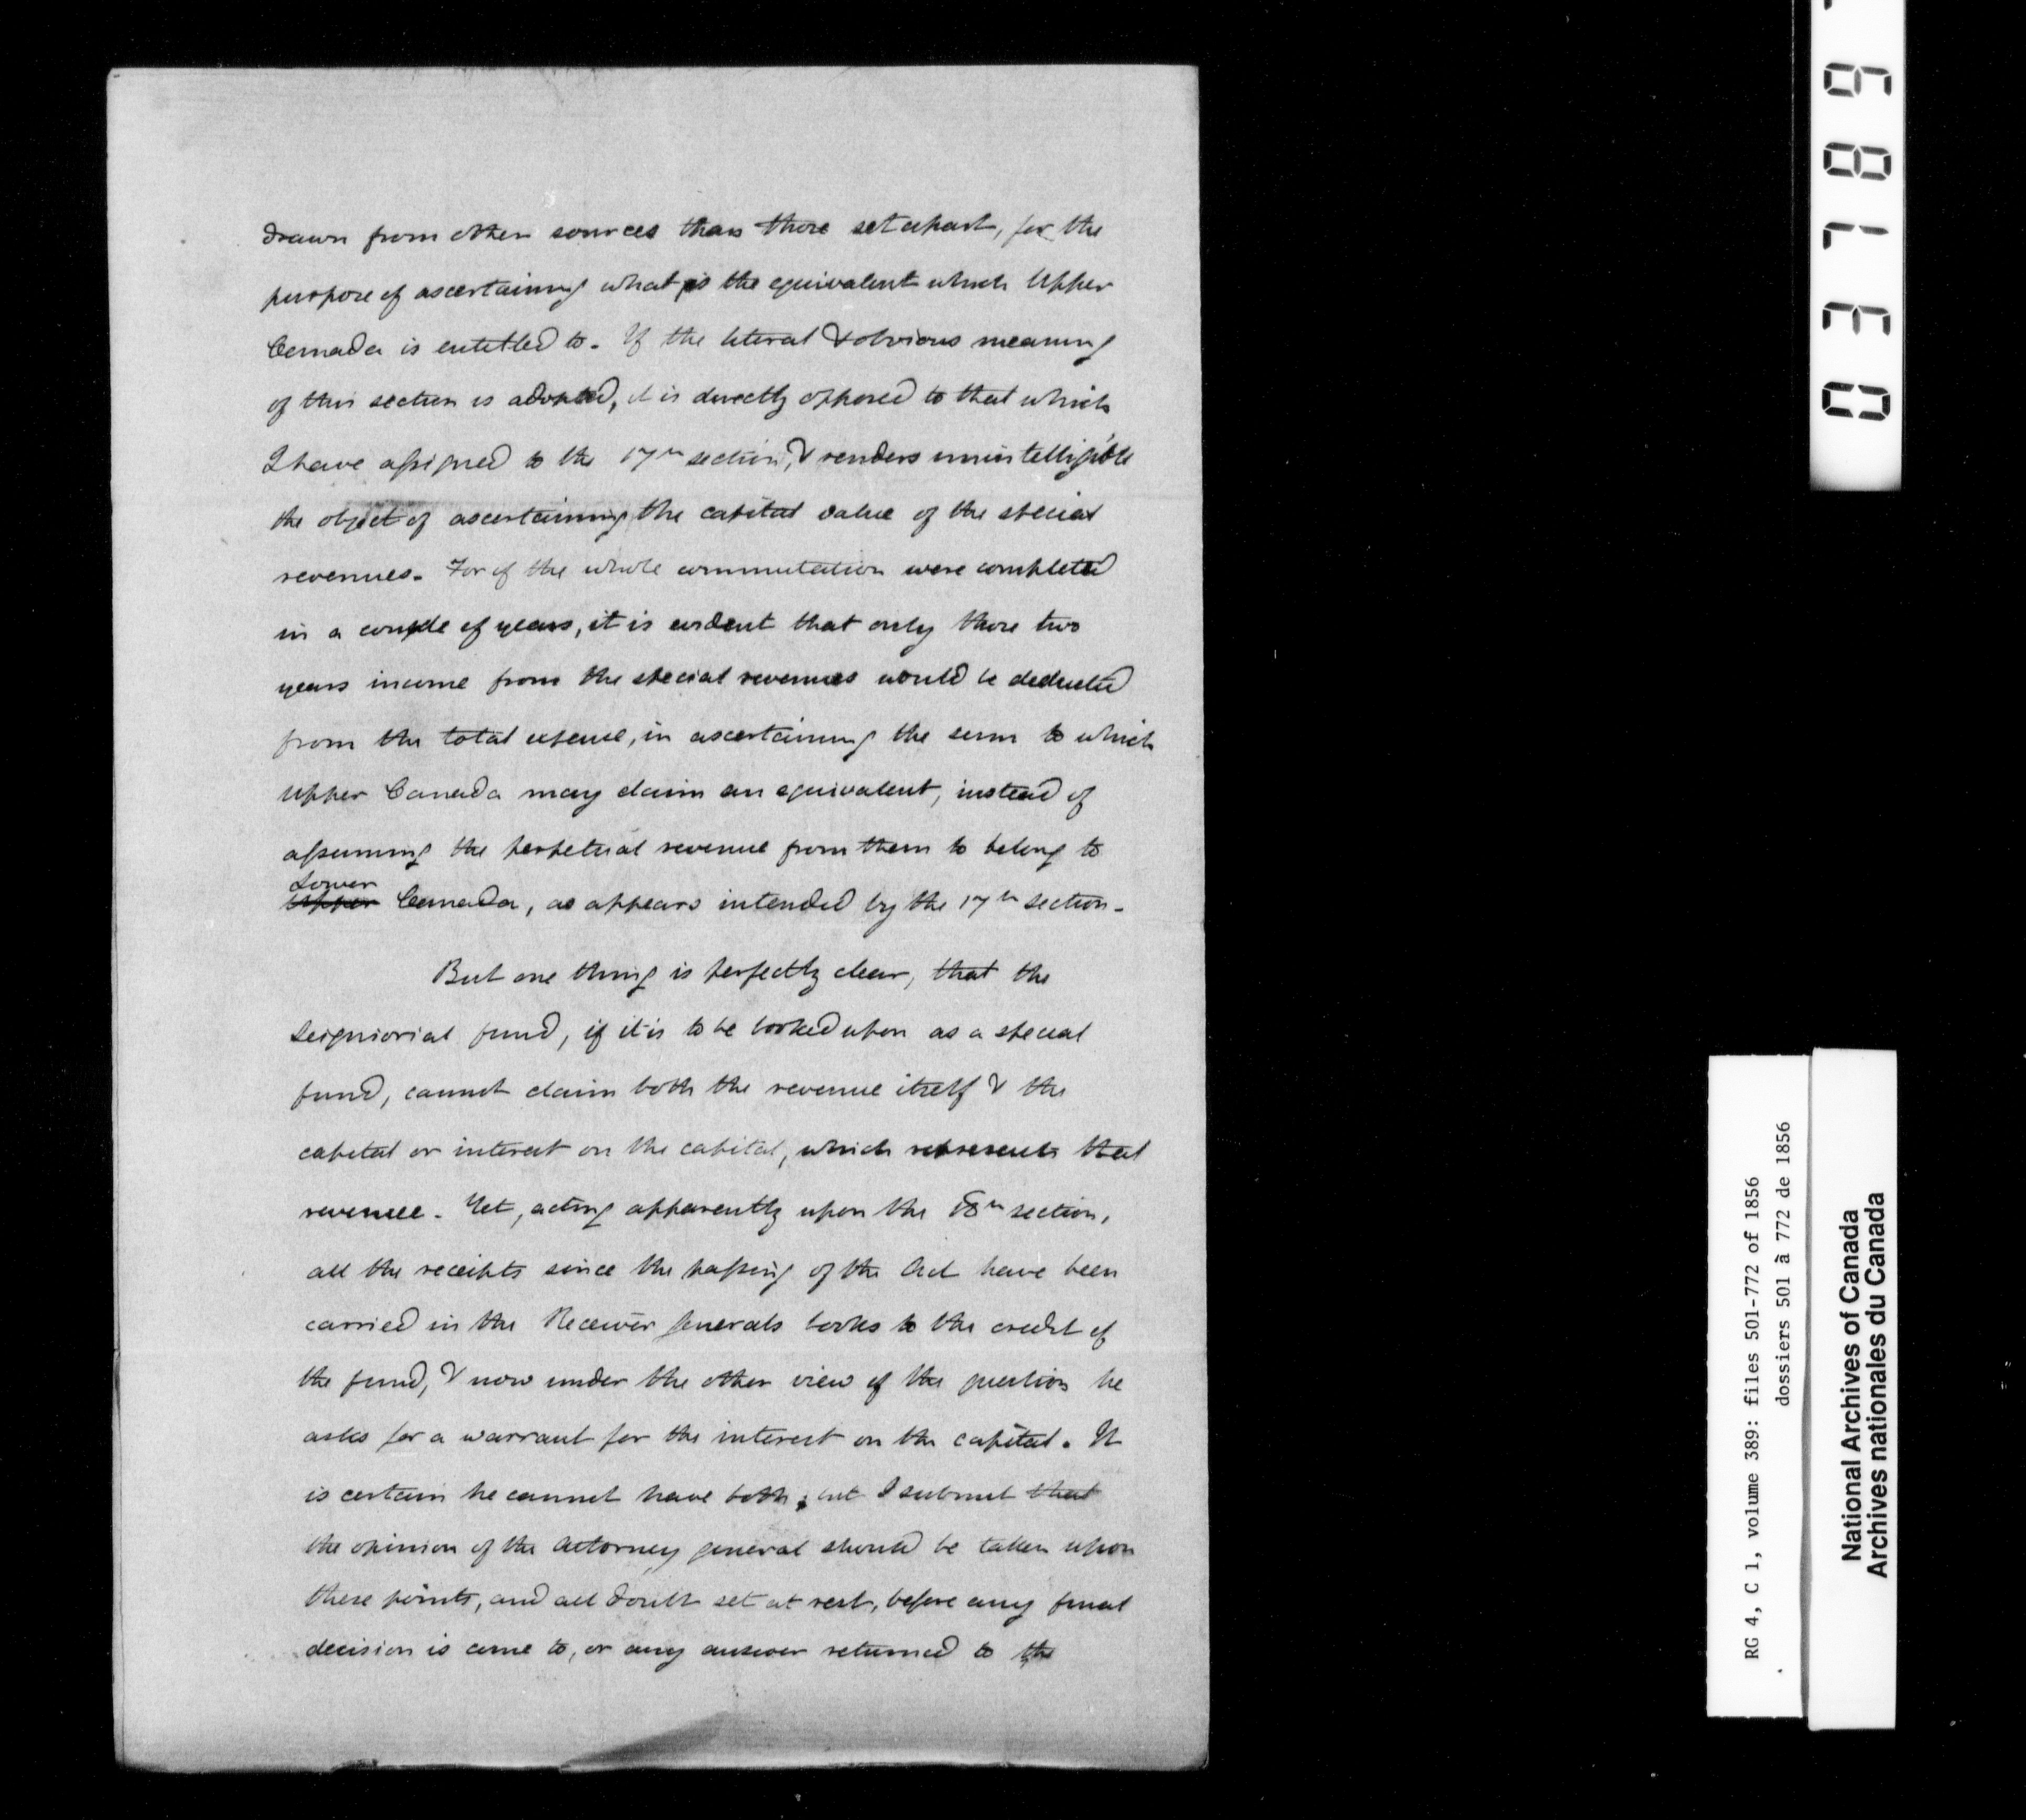 drawn from other sources than those set apart, for the
purpose of ascertaining what is the equivalent which Upper
Canada is entitled to. If the literal & obvious meaning
of this section is adopted, it is directly opposed to that which
I have assigned to the 17th section, & renders unintelligible
the object of ascertaining the capital value of the special
revenues. For if the whole commutation were completed
in a couple of years, it is evident that only those two
years income from the special revenues would be deducted
from the total expense, in ascertaining the sum to which
Upper Canada may claim an equivalent, instead of
assuming the perpetual revenue from them to belong to
Lower
Upper Canada, as appears intended by the 17th section.
But one thing is perfectly clear, that the
Seigniorial fund, if it is to be looked upon as a special
fund, cannot claim both the revenue itself & the
capital or interest on the capital, which represents that
revenue. Yet, acting apparently upon the 18th section,
all the receipts since the passing of the Act have been
carried in the Receiver Generals books to the credit of
the fund, & now under the other view of the question he
asks for a warrant for the interest on the capital. It
is certain he cannot have both; but I submit that
the opinion of the Attorney general should be taken upon
these points, and all doubt set at rest, before any final
decision is come to, or any answer returned to the
037189
RG 4, C 1, volume 389: files 501-772 of 1856
dossiers 501 à 772 de 1856
National Archives of Canada
Archives nationales du Canada